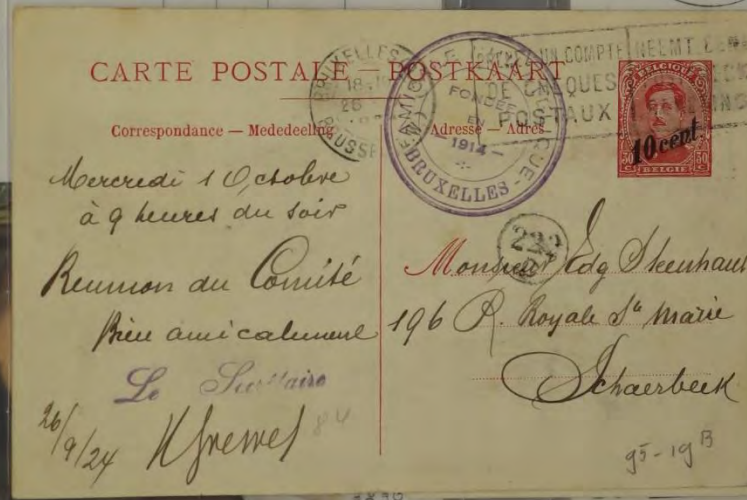 CARTE POSTALE — POSTKAART
Correspondance — Mededeeling
Adresse — Adres
BRUXELLES
18
26
BRUSSEL
FONDÉE
EN
— 1914 —
BRUXELLES
UN COMPTE
DE CHEQUES
POSTAUX
NEEMT EEN
BELGIQUE
10 cent.
30 c. 30 c.
BELGIE
Mercredi 1 Octobre
à 9 heures du soir
Reunion du Comité
Bien amicalement
Le Secrétaire
26/9/24
84
Monsieur Edg
196 R. Royale Ste Marie
Schaerbeek
95-19 B